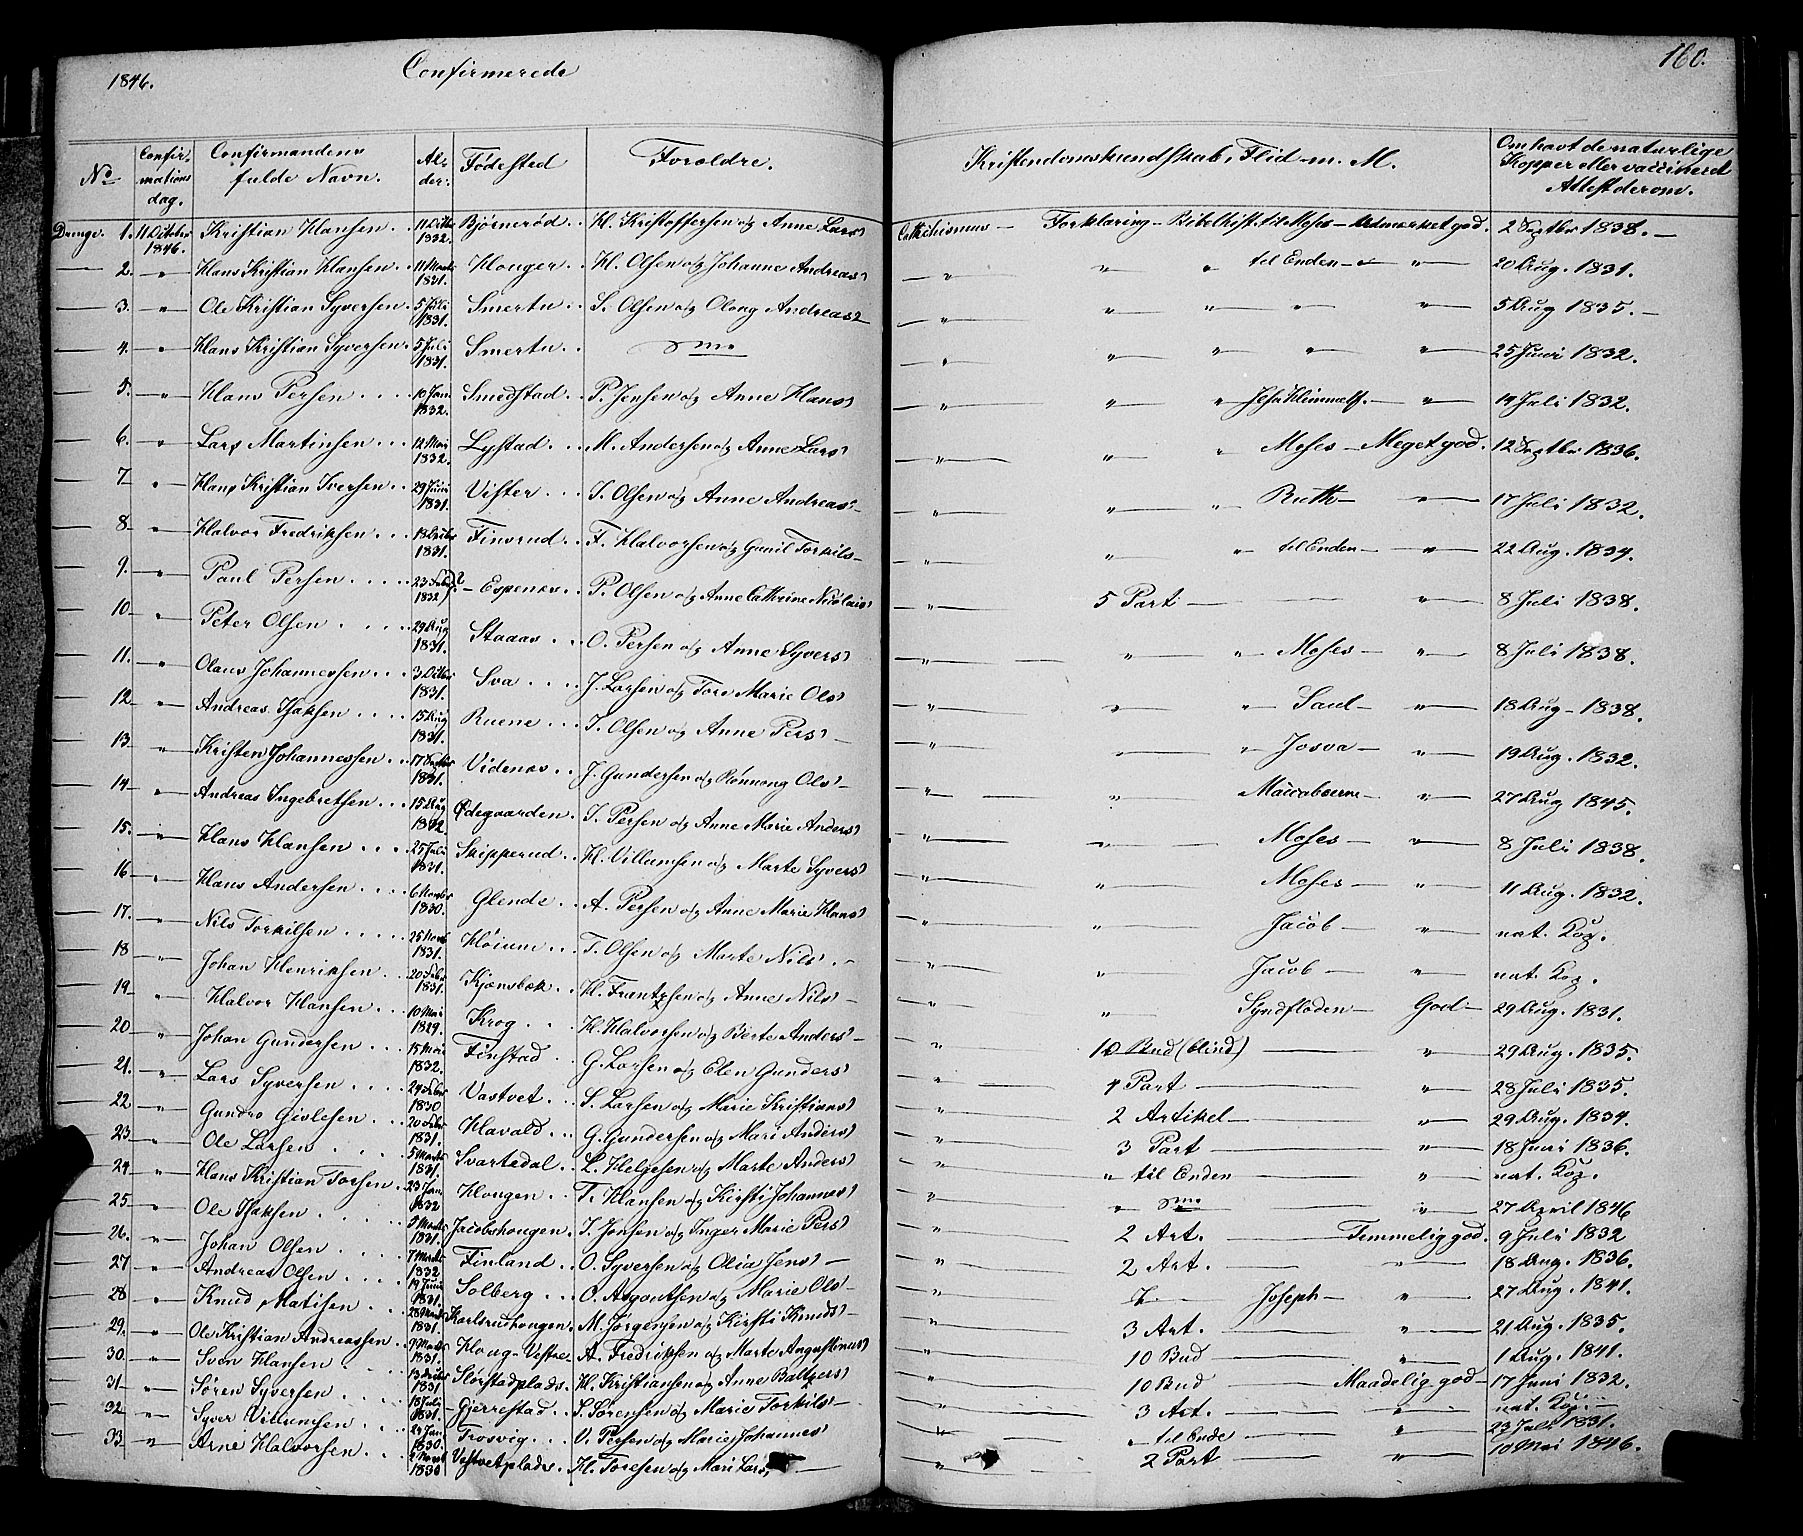 1846.
Confirmerede
160.
No
Confirmations dag.
Confirmandens fulde Navn.
Alder.
Fødestad
Foreldre.
Kristendomskundskab, Flid m. M.
Om havt de naturlige Kopper eller vaccineret Attest derom.
Drenge. 1. 11 Octobr 1846. Kristian Hansen 11 Octbr 1832. Bjørnerød H. Kristoffersen og Anne Lars Cathechismus Forklaring Bibelhist. til Moses Udmærket god. 2 Septbr 1838.
2. " Hans Kristian Hansen 11 Marts 1831. Houger H. Olsen og Johanne Andreas " " " til Enden " 20 Aug. 1831.
3. " Ole Kristian Syversen 5 Juli 1831. Smertu S. Olsen og Olong Andreas " " " " " 5 Aug 1835.
4. " Hans Kristian Syversen 5 Juli 1831. Smertu " " " " " 25 Juni 1832.
5. " Hans Persen 10 Jan. 1832. Smedstad P. Jensen og Anne Hans " " " Jesu Himmelf. " 19 Juli 1832.
6. " Lars Martinsen 12 Mai 1832. Lystad M. Andersen og Anne Lars " " " Moses Meget god. 12 Septbr 1836.
7 " Hans Kristian Iversen 29 Juni 1831. Vister I. Olsen og Anne Andreas " " " Ruth " 17 Juli 1832.
8 " Halvor Fredriksen 1831. Finsrud F. Halvorsen og Gunil Torkils " " " til Enden " 22 Aug. 1834.
9. " Paul Persen 23 Febr 1832 ? Espenæs P. Olsen og Anne Cathrine Nicolais " 5 Part " 8 Juli 1838.
10 " Peter Olsen 29 Aug 1831. Staaas O. Persen og Anne Syvers " " " Moses " 8 Juli 1838.
11. " Olaus Johannessen 3 Octbr 1831. Sva J. Larsen og Tore Marie Ols " " " Saul " 18 Aug 1838.
12 " Andreas Isaksen 15 Aug 1831. Ruene I. Olsen og Anne Pers " " " Josva " 19 Aug. 1832.
13 " Kristen Johannessen 17 Septbr 1831. Videnæs J. Gundersen og Rønnong Ols " " Maccabeerne " 27 Aug 1845.
14 " Andreas Ingebretsen 15 Aug 1832 Ødegaarden I. Persen og Anne Marie Anders " " Moses " 8 Juli 1838.
15. " Hans Hansen 25 Juli 1831. Skipperud H. Villumsen og Marte Syvers " " Moses " 11 Aug. 1832.
16 " Hans Andersen 6 1830. Glende A. Persen og Anne Marie Hans " " Jacob " nat. Kop.
17. " Nils Torkilsen 25 1831. Høium T. Olsen og Marte Nils " " Jacob " nat. Kop.
18 " Johan Henriksen 20 Febr 1831. Kjønsbøk H. Frantzsen og Anne Nils " " Syndfloden God 29 Aug. 1831.
19 " Halvor Hansen 10 Mai 1829. Krog H. Halvorsen og Berte Anders " 10 Bud (blind) " 29 Aug. 1835.
20 " Johan Gundersen 15 Mai 1832. Finstad G. Larsen og Elen Gunders " 4 Part " 28 Juli 1835.
21. " Lars Syversen 24 Febr 1830 Vastvet S. Larsen og Marie Kristians " 2 Artikel " 29 Aug. 1834.
22 " Gundro Gislesen 20 Febr 1831. Havald G. Gundersen og Mari Anders " 3 Part " 18 Juni 1836.
23 " Ole Larsen 5 Marts 1831. Svartedal L. Helgesen og Marte Anders " " til Enden " nat. Kop.
24 " Hans Kristian Torsen 23 Jan. 1832 Hougen T. Hansen og Kirsti Johannes " " " 27 April 1846
25 " Ole Isaksen 1831. Jacobshougen I. Jonsen og Inger Marie Pers " 2 Art. Temmelig god. 9 Juli 1832
26. " Johan Olsen 7 Marts 1832 Finland O. Syversen og Olia Jens " 2 Art. " 18 Aug. 1836.
27 " Andreas Olsen 19 Juni 1831. Solberg O. Asgautsen og Marie Ols " Joseph " 27 Aug. 1841.
28 " Knud Matisen 28 1831. Karlsrudhougen M. Jørgensen og Kirsti Knuds " 3 Art. " 21 Aug. 1835.
29. " Ole Kristian Andreassen 1831. Houg-Vestre A. Fredriksen og Marte Augustinus " 10 Bud " 1 Aug. 1841.
30. " Sven Hansen 13 1831 Slorstadplads H. Kristiansen og Anne Baltzers " 10 Bud Maadelig god 17 Juni 1832.
31 " Søren Syversen 18 Juli 1831. Gjerrestad S. Sørensen og Marie Torkils " 3 Art. " nat. Kop.
32 " Syver Villumsen 24 Jan. 1830. Trosvig V. Persen og Marie Johannes " til Ende " 23 Juli 1831.
33 " Arne Halvorsen 1830 Vestvetplads H. Toresen og Mari Lars " 2 Part " 10 Mai 1846.